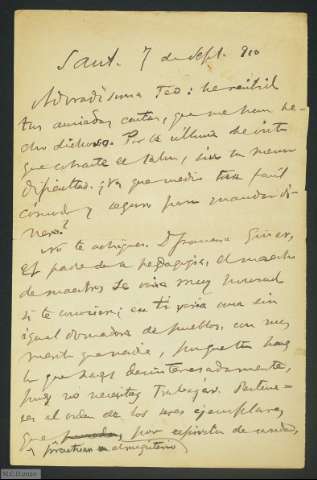 Sant. 7 de Sept. 910
Adoradísima Teo: he recibido
tus amadas cartas, que me han he-
cho dichoso. Por la última he visto
que cobraste el        , sin la menor
dificultad. ¿Ves que medio tan fácil
cómodo y seguro para mandar di-
nero?
No te achiques. D. Francisco Giner,
el padre de la pedagogía, el maestro
de maestros se vería muy honrado
si te conociera; en ti vería una sin
igual          de pueblos, con más
mérito que nadie, porque tú haces
lo que haces desinteresadamente,
pues no necesitas trabajar. Pertene-
ces al orden de los seres ejemplares,
que        por espíritu de caridad,
practican el magisterio